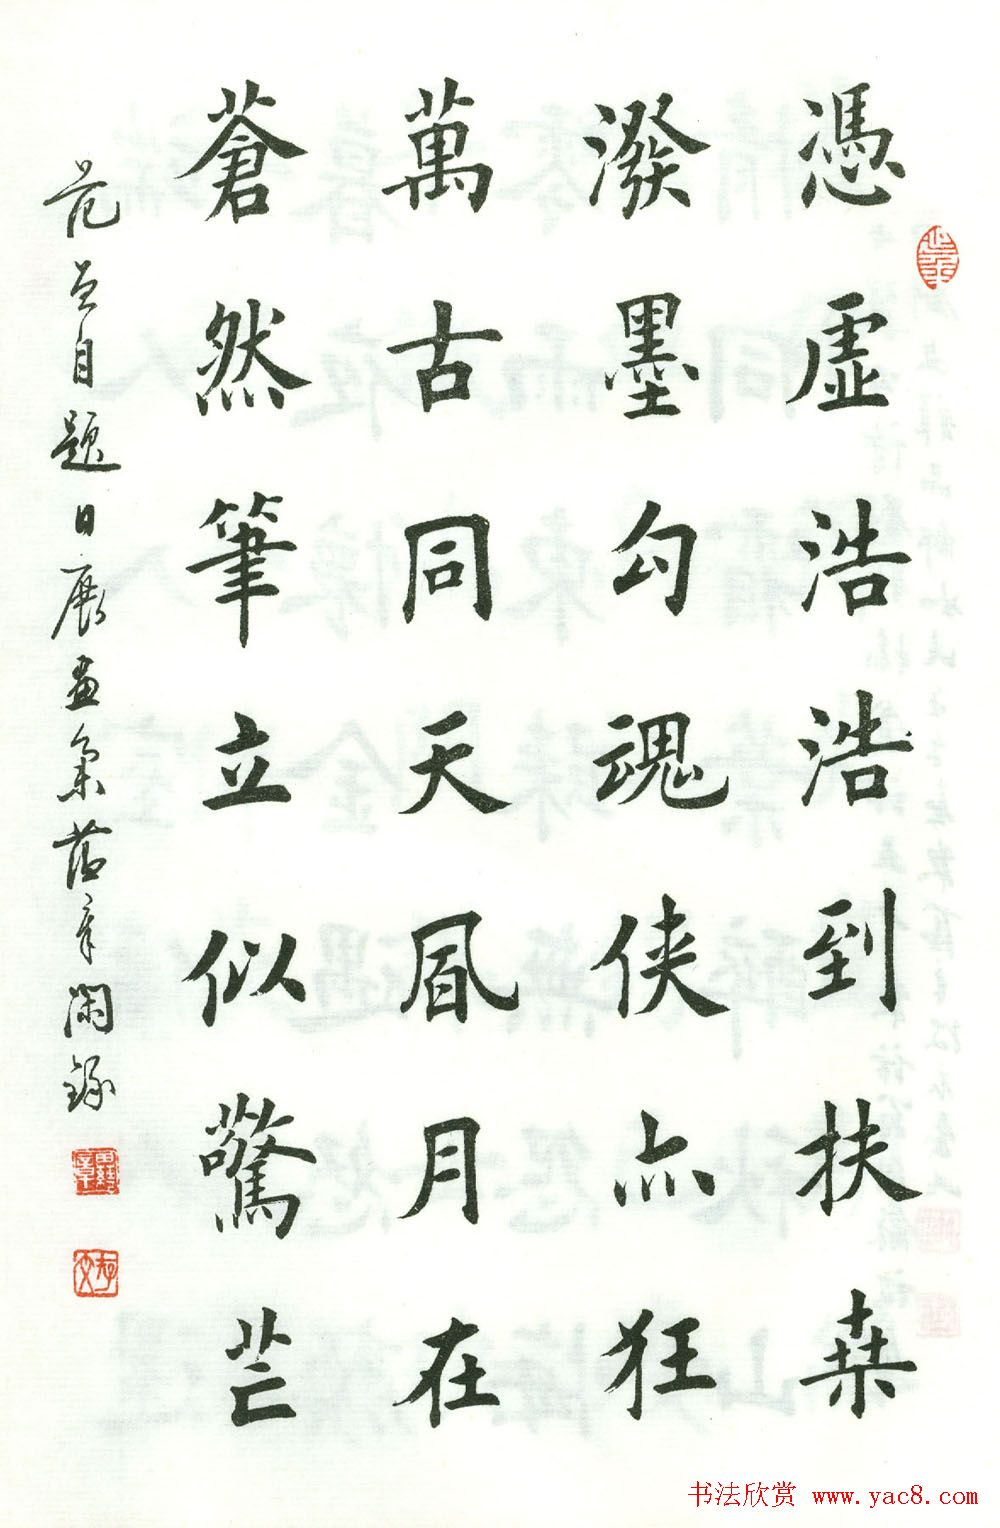 憑虚浩浩到扶桒
潑墨勾魂俠亦狂
萬古同天風月在
蒼然筆立似驚芒
范曾自題日展畫集藴章閑錄
书法欣赏 www.yac8.com